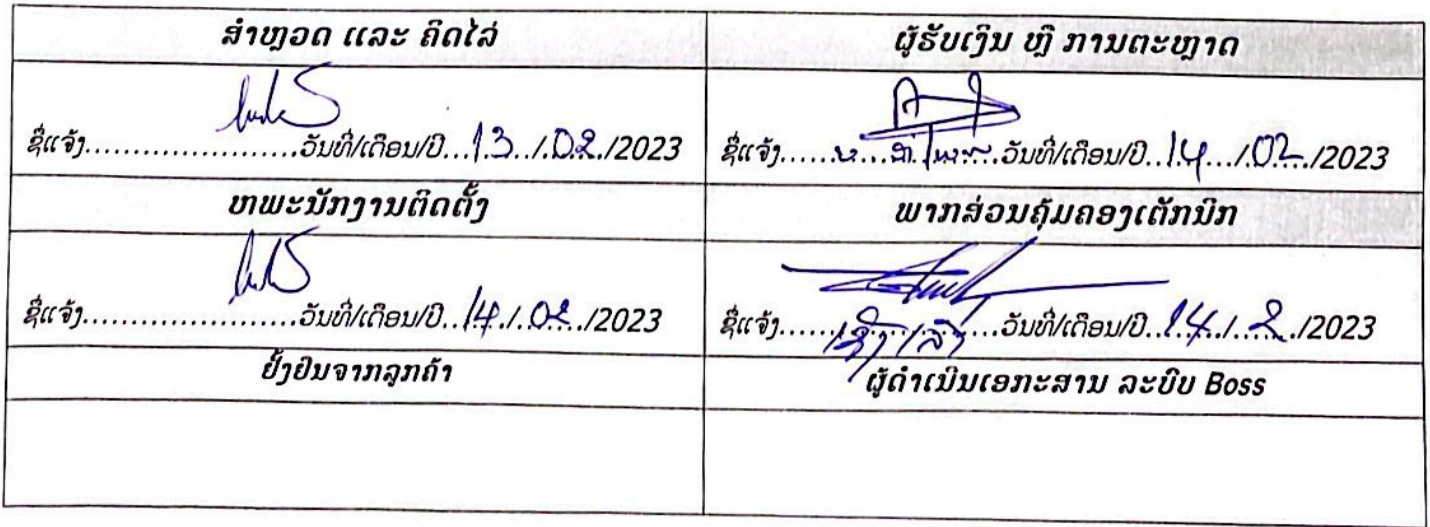 ສຳຫຼວດ ແລະ ຄິດໄລ່
ຜູ້ຮັບເງິນ ຫຼື ການຕະຫຼາດ
ຊື່ແຈ້ງ.....................ວັນທີ່/ເດືອນ/ປີ...13../.02./2023
ຊື່ແຈ້ງ.....................ວັນທີ່/ເດືອນ/ປີ..14.../.02../2023
ຫພະນັກງານຕິດຕັ້ງ
ພາກສ່ວນຄຸ້ມຄອງເຕັກນິກ
ຊື່ແຈ້ງ.....................ວັນທີ່/ເດືອນ/ປີ..14./.02../2023
ຊື່ແຈ້ງ.....................ວັນທີ່/ເດືອນ/ປີ..14../..2../2023
ຢັ້ງຢືນຈາກລູກຄ້າ
ຜູ້ດຳເນີນເອກະສານ ລະບົບ Boss